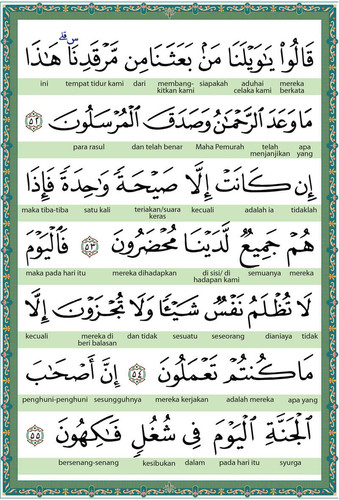 قَالُوا۟ يَـٰوَيْلَنَا مَنۢ بَعَثَنَا مِن مَّرْقَدِنَا ۜ ۗ هَـٰذَا
ini tempat tidur kami dari membang-kitkan kami siapakah aduhai celaka kami mereka berkata
مَا وَعَدَ ٱلرَّحْمَـٰنُ وَصَدَقَ ٱلْمُرْسَلُونَ ٥٢
para rasul dan telah benar Maha Pemurah telah menjanjikan apa yang
إِن كَانَتْ إِلَّا صَيْحَةً وَٰحِدَةً فَإِذَا
maka tiba-tiba satu kali teriakan/suara keras kecuali adalah ia tidaklah
هُمْ جَمِيعٌ لَّدَيْنَا مُحْضَرُونَ ٥٣ فَٱلْيَوْمَ
maka pada hari itu mereka dihadapkan di sisi/ di hadapan kami semuanya mereka
لَا تُظْلَمُ نَفْسٌ شَيْـًٔا وَلَا تُجْزَوْنَ إِلَّا
kecuali mereka di beri balasan dan tidak sesuatu seseorang dianiaya tidak
مَا كُنتُمْ تَعْمَلُونَ ٥٤ إِنَّ أَصْحَـٰبَ
penghuni-penghuni sesungguhnya mereka kerjakan adalah mereka apa yang
ٱلْجَنَّةِ ٱلْيَوْمَ فِى شُغُلٍ فَـٰكِهُونَ ٥٥
bersenang-senang kesibukan dalam pada hari itu syurga